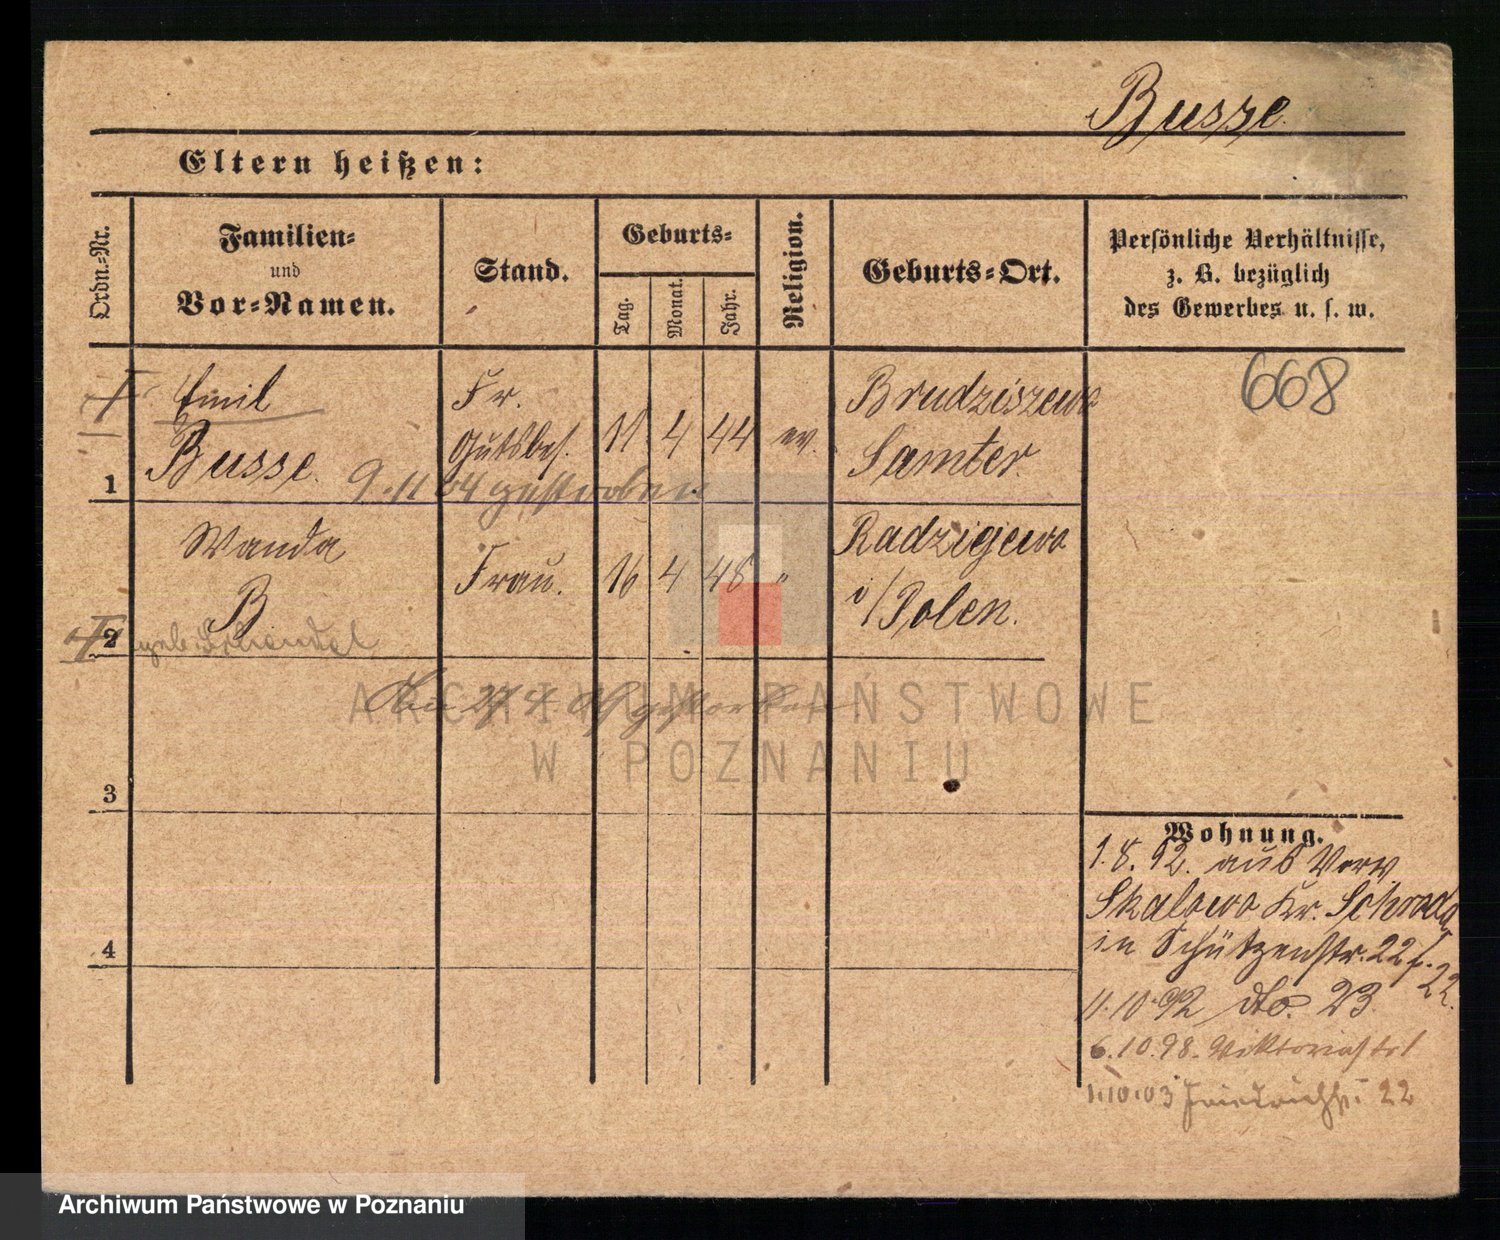 Busse
Eltern heißen:
Ordn.-Nr.
Familien-
und
Vor-Namen.
Stand.
Geburts-
Tag.
Monat.
Jahr.
Religion.
Geburts-Ort.
Persönliche Verhältnisse,
z. B. bezüglich
des Gewerbes u. s. w.
668
Emil
Busse
Fr.
Gutsbes.
11 4 44 ev.
Brudziszewo
Samter
1
9. 11 04 gestorben
Wanda
B
Frau.
16 4 48 "
Radzigewo
i/Polen.
2
geb.
27 4. 09 gestorben
3
4
Wohnung.
1.8.92. aus Vorw.
Skalowo Kr. Schroda
in Schützenstr. 22
22.
11.10.92 dto. 23
6.10.98. Viktoriastr 1
1.10.03 Friedrichstr. 22
ARCHIWUM PAŃSTWOWE
W POZNANIU
Archiwum Państwowe w Poznaniu